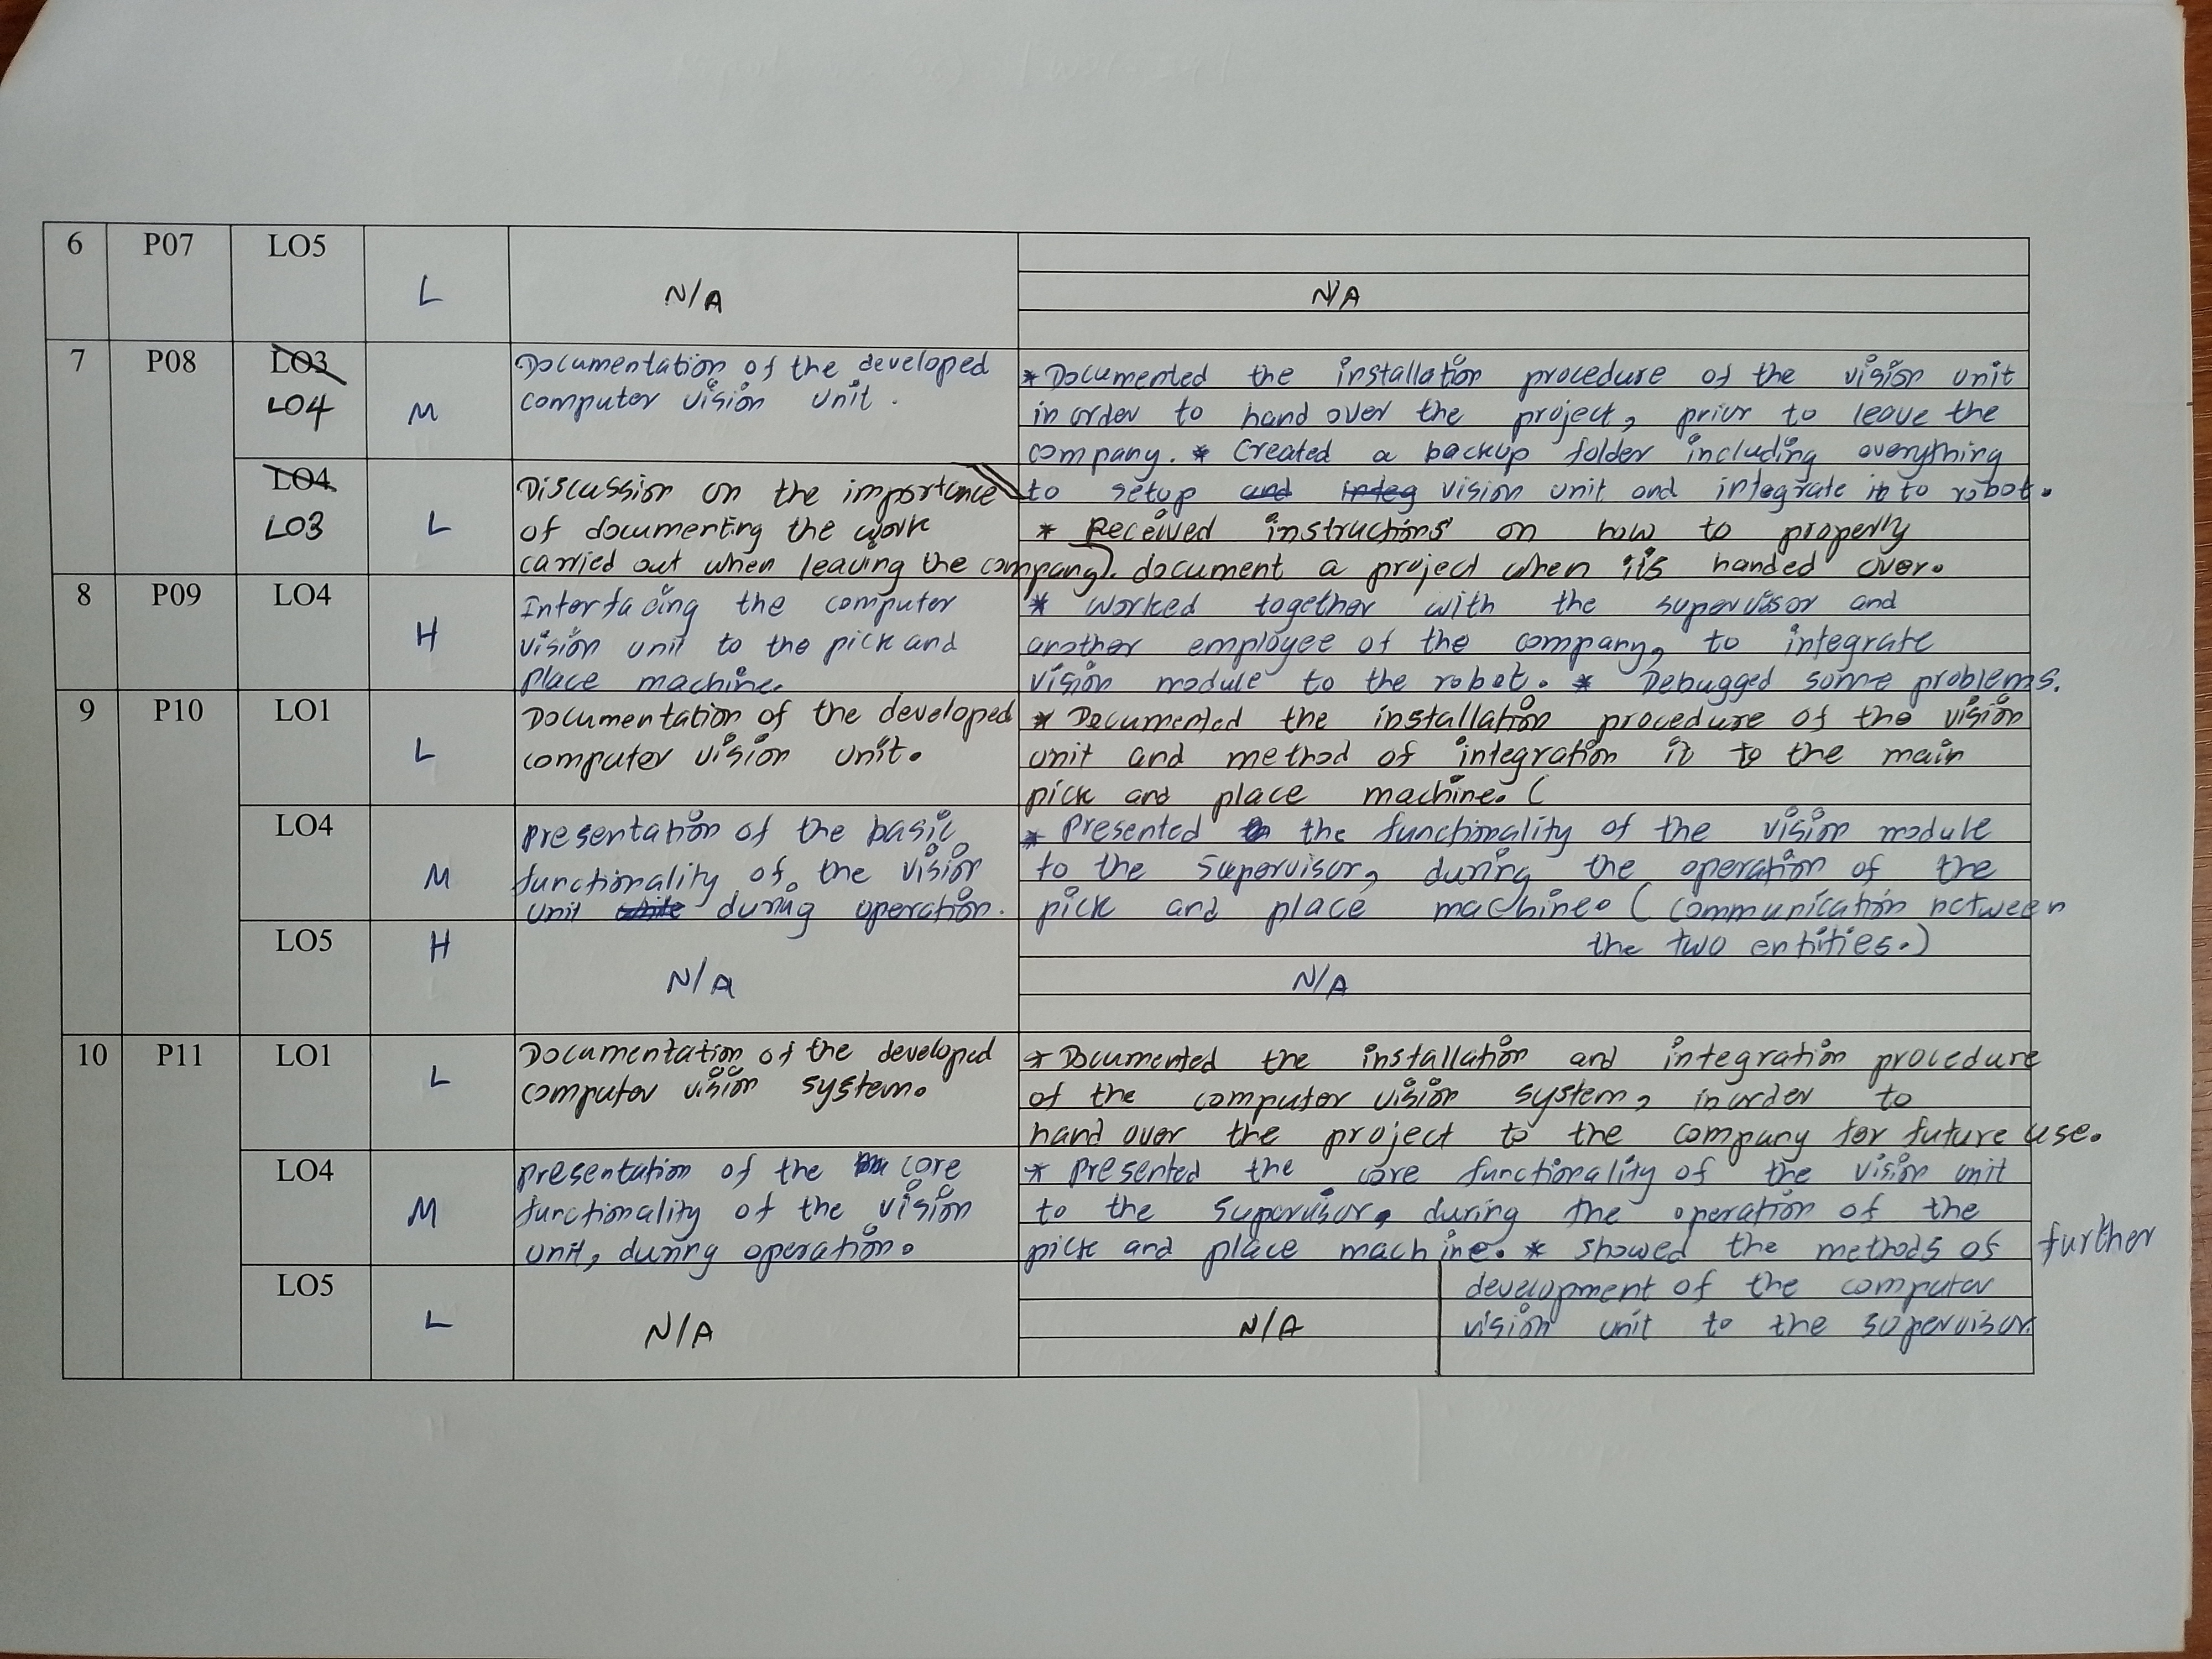 6 P07 LO5
L N/A N/A
7 P08 LO3
LO4 M
Documentation of the developed
computer vision unit.
* Documented the installation procedure of the vision unit
in order to hand over the project, prior to leave the
company. * Created a backup folder including everything
to setup and integ vision unit and integrate it to robot.
LO4
LO3 L
Discussion on the importance
of documenting the work
carried out when leaving the company).
* Received instructions on how to properly
document a project when it is handed over.
8 P09 LO4
H
Interfacing the computer
vision unit to the pick and
place machine.
* Worked together with the supervisor and
another employee of the company, to integrate
vision module to the robot. * Debugged some problems.
9 P10 LO1
L
Documentation of the developed
computer vision unit.
* Documented the installation procedure of the vision
unit and method of integration it to the main
pick and place machine. (
LO4
M
Presentation of the basic
functionality of the vision
unit while during operation.
* Presented the functionality of the vision module
to the supervisor, during the operation of the
pick and place machine. (communication netween
the two entities.)
LO5 H
N/A N/A
10 P11 LO1
L
Documentation of the developed
computer vision system.
* Documented the installation and integration procedure
of the computer vision system, inorder to
hand over the project to the company for future use.
LO4
M
presentation of the core
functionality of the vision
unit, during operation.
* Presented the core functionality of the vision unit
to the supervisor, during the operation of the
pick and place machine. * showed the methods of further
development of the computer
vision unit to the supervisor.
LO5
L N/A N/A